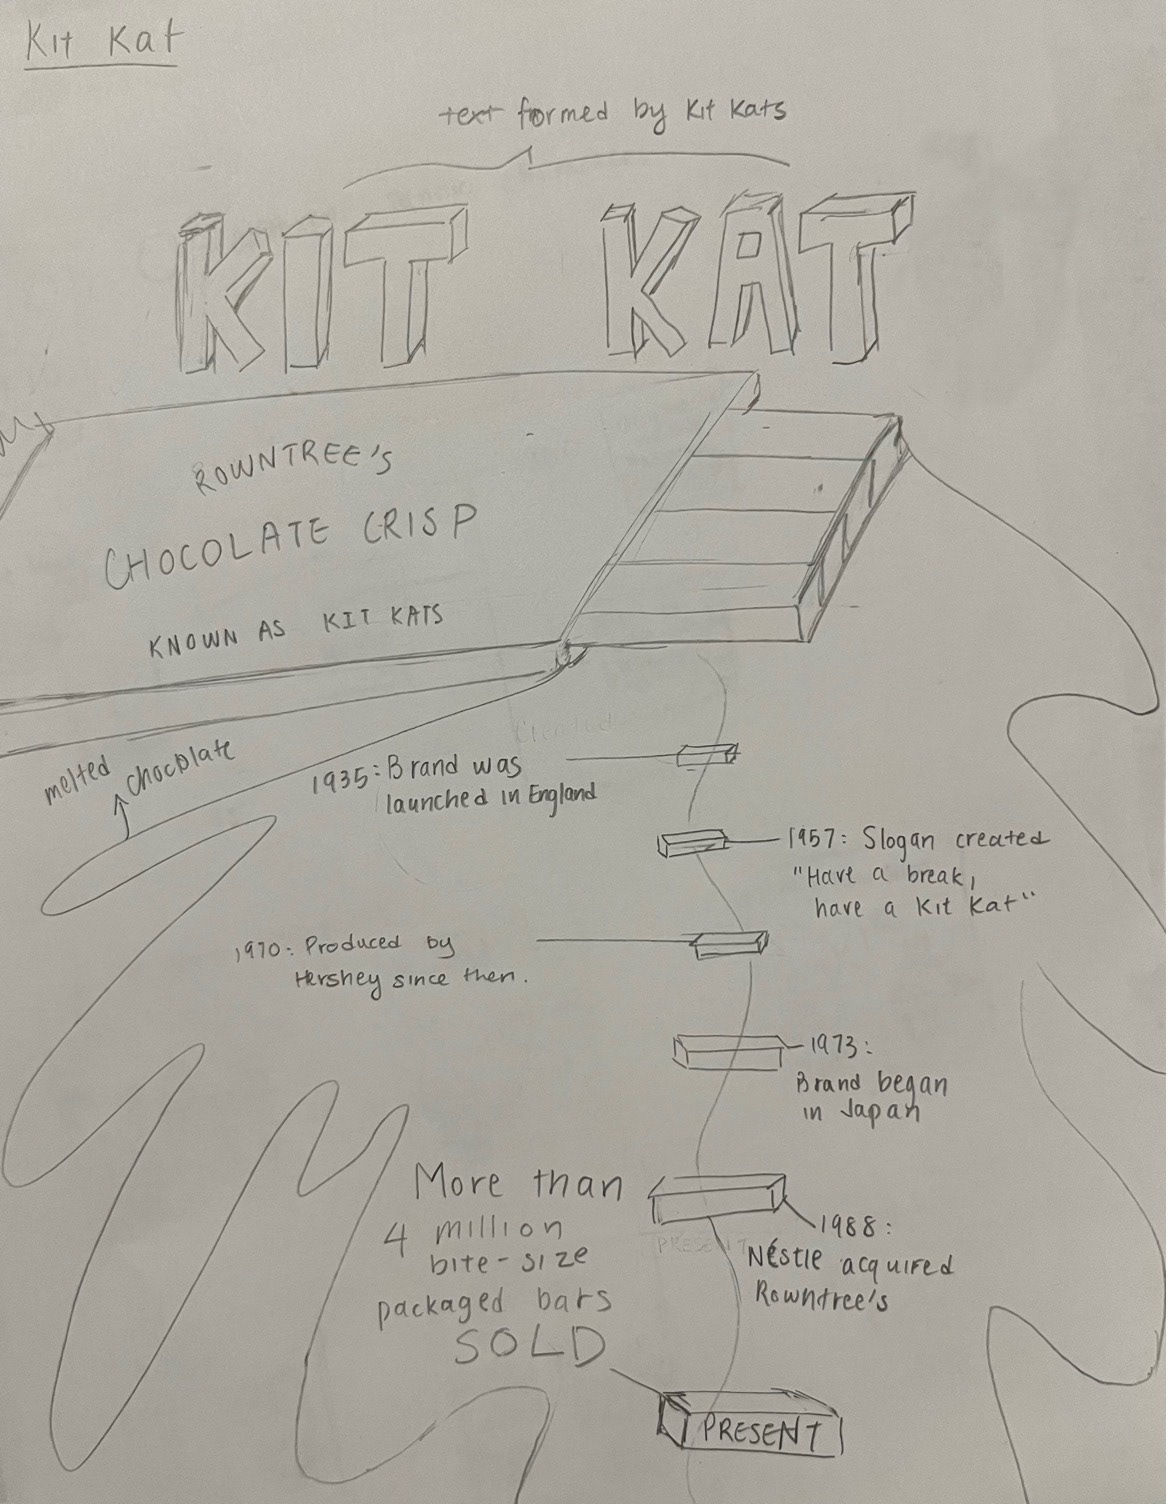 Kit Kat
text formed by Kit Kats
KIT KAT
ROWNTREE'S
CHOCOLATE CRISP
KNOWN AS KIT KATS
Created
melted chocolate
1935: Brand was
launched in England
1957: Slogan created
"Have a break,
have a Kit Kat"
1970: Produced by
Hershey since then.
1973:
Brand began
in Japan
More than
4 million
bite-size
packaged bars
SOLD
PRESENT
1988:
Néstle acquired
Rowntree's
PRESENT